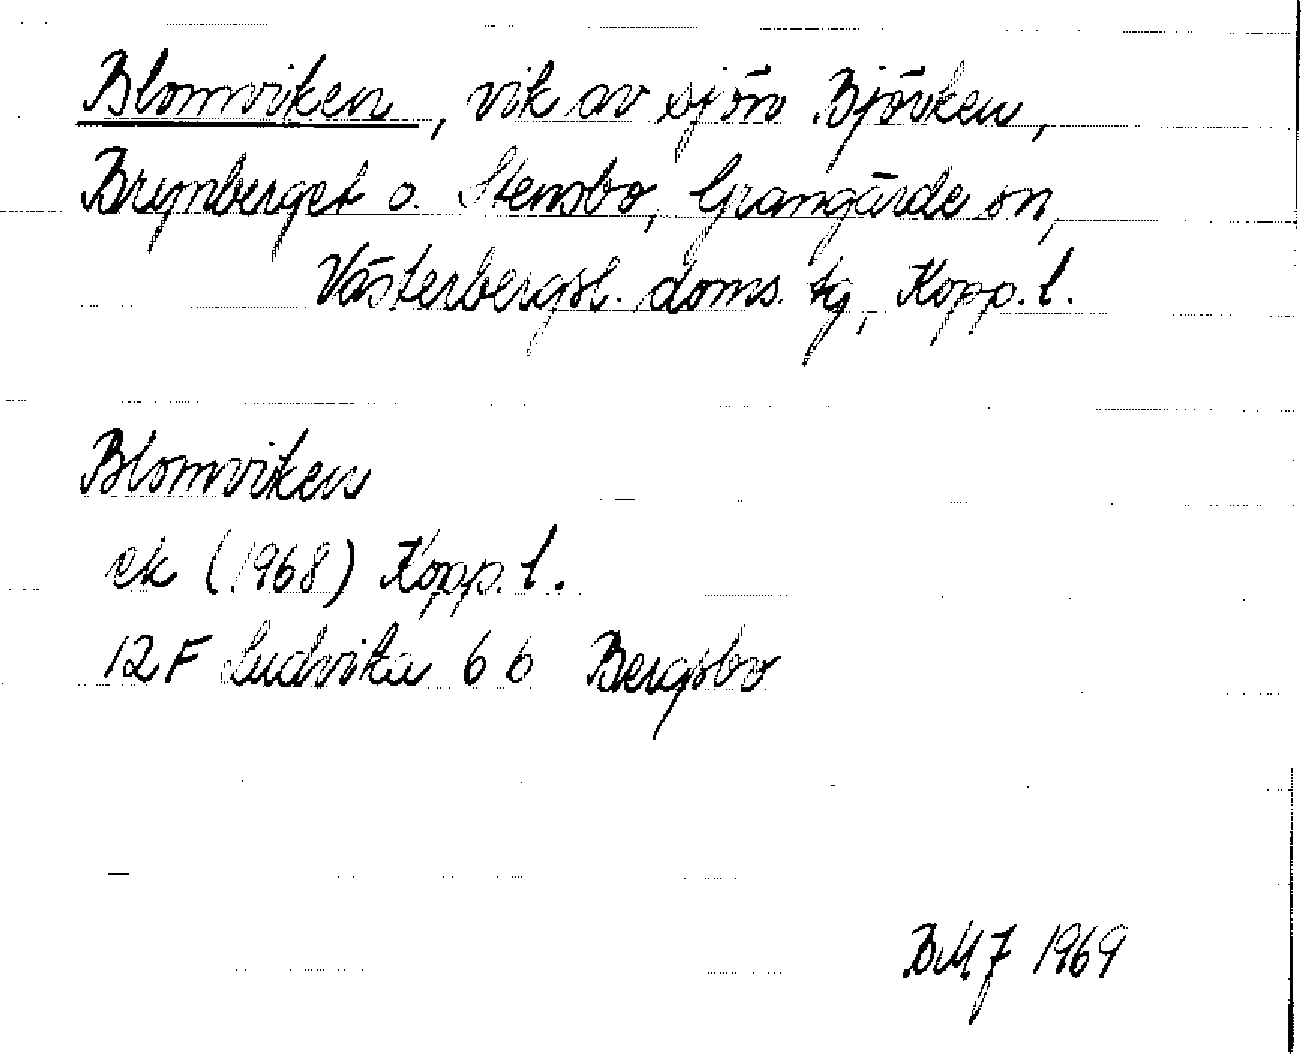 Blomviken, vik av sjön Björken,
Brynberget o. Stensbo, Grangärde sn,
Västerbergsl. doms. tg, Kopp. l.
Blomviken
ek (1968) Kopp. l.
12 F Ludvika 6 b Bergsbo
BMJ 1969